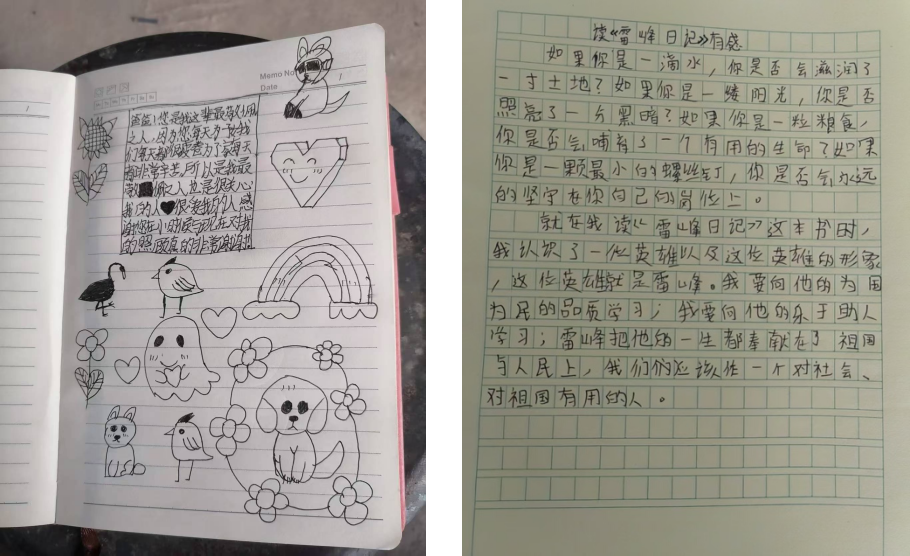 Memo No.
Date
1
1
爸爸！您是我这辈最敬佩
之人，因为您每天为了我
们每天都很疲惫为了云每天
都非常辛苦，所以是我最
敬佩之人也是很关心
我们的人 很爱我的人感
谢您在小时候与现在对我
的照顾真的非常感谢
读《雷峰日记》有感
如果你是一滴水，你是否会滋润了
一寸土地？如果你是一缕阳光，你是否
照亮了一片黑暗？如果你是一粒粮食，
你是否会哺育了一个有用的生命？如果
你是一颗最小的螺丝钉，你是否会永远
的坚守在你自己的岗位上。
就在我读《雷峰日记》这本书时，
我认识了一位英雄以及这位英雄的形象
，这位英雄就是雷峰。我要向他的为国
为民的品质学习；我要向他的乐于助人
学习；雷峰把他的一生都奉献在了祖国
与人民上，我们们应该作一个对社会、
对祖国有用的人。